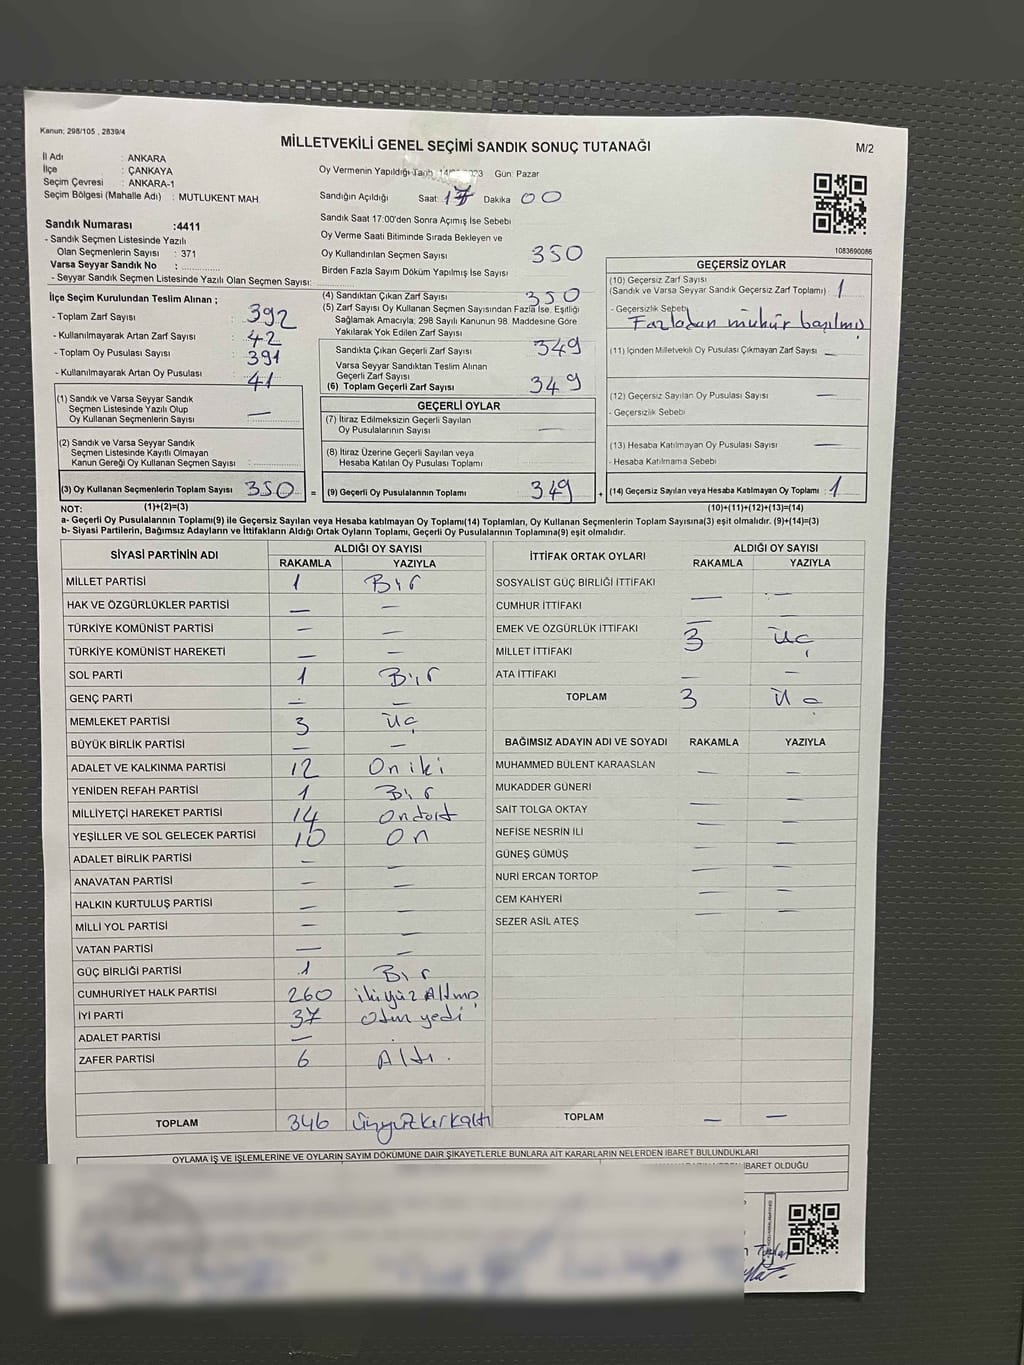 Kanun; 298/105 , 2839/4
MİLLETVEKİLİ GENEL SEÇİMİ SANDIK SONUÇ TUTANAĞI
M/2
İl Adı : ANKARA
İlçe : ÇANKAYA
Seçim Çevresi : ANKARA-1
Seçim Bölgesi (Mahalle Adı) : MUTLUKENT MAH.
Oy Vermenin Yapıldığı Tarih: Gün: Pazar
Sandığın Açıldığı Saat: 17 Dakika 00
Sandık Saat 17:00'den Sonra Açımış İse Sebebi
Oy Verme Saati Bitiminde Sırada Bekleyen ve
Oy Kullandırılan Seçmen Sayısı 350
Birden Fazla Sayım Döküm Yapılmış İse Sayısı
Sandık Numarası :4411
- Sandık Seçmen Listesinde Yazılı
Olan Seçmenlerin Sayısı : 371
Varsa Seyyar Sandık No :
- Seyyar Sandık Seçmen Listesinde Yazılı Olan Seçmen Sayısı:
İlçe Seçim Kurulundan Teslim Alınan ;
- Toplam Zarf Sayısı : 392
- Kullanılmayarak Artan Zarf Sayısı : 42
- Toplam Oy Pusulası Sayısı : 391
- Kullanılmayarak Artan Oy Pusulası : 41
(1) Sandık ve Varsa Seyyar Sandık
Seçmen Listesinde Yazılı Olup
Oy Kullanan Seçmenlerin Sayısı —
(2) Sandık ve Varsa Seyyar Sandık
Seçmen Listesinde Kayıtlı Olmayan
Kanun Gereği Oy Kullanan Seçmen Sayısı
(3) Oy Kullanan Seçmenlerin Toplam Sayısı 350
(4) Sandıktan Çıkan Zarf Sayısı 350
(5) Zarf Sayısı Oy Kullanan Seçmen Sayısından Fazla İse, Eşitliği
Sağlamak Amacıyla; 298 Sayılı Kanunun 98. Maddesine Göre
Yakılarak Yok Edilen Zarf Sayısı
Sandıkta Çıkan Geçerli Zarf Sayısı 349
Varsa Seyyar Sandıktan Teslim Alınan
Geçerli Zarf Sayısı
(6) Toplam Geçerli Zarf Sayısı 349
GEÇERLİ OYLAR
(7) İtiraz Edilmeksizin Geçerli Sayılan
Oy Pusulalarının Sayısı —
(8) İtiraz Üzerine Geçerli Sayılan veya
Hesaba Katılan Oy Pusulası Toplamı
= (9) Geçerli Oy Pusulalarının Toplamı 349
1083690086
GEÇERSİZ OYLAR
(10) Geçersiz Zarf Sayısı
(Sandık ve Varsa Seyyar Sandık Geçersiz Zarf Toplamı) 1
- Geçersizlik Sebebi
Fazladan mühür basılmış
(11) İçinden Milletvekili Oy Pusulası Çıkmayan Zarf Sayısı —
(12) Geçersiz Sayılan Oy Pusulası Sayısı —
- Geçersizlik Sebebi
(13) Hesaba Katılmayan Oy Pusulası Sayısı —
- Hesaba Katılmama Sebebi
+ (14) Geçersiz Sayılan veya Hesaba Katılmayan Oy Toplamı : 1
NOT: (1)+(2)=(3) (10)+(11)+(12)+(13)=(14)
a- Geçerli Oy Pusulalarının Toplamı(9) ile Geçersiz Sayılan veya Hesaba katılmayan Oy Toplamı(14) Toplamları, Oy Kullanan Seçmenlerin Toplam Sayısına(3) eşit olmalıdır. (9)+(14)=(3)
b- Siyasi Partilerin, Bağımsız Adayların ve İttifakların Aldığı Ortak Oyların Toplamı, Geçerli Oy Pusulalarının Toplamına(9) eşit olmalıdır.
SİYASİ PARTİNİN ADI ALDIĞI OY SAYISI
RAKAMLA YAZIYLA
MİLLET PARTİSİ 1 Bir
HAK VE ÖZGÜRLÜKLER PARTİSİ — —
TÜRKİYE KOMÜNİST PARTİSİ — —
TÜRKİYE KOMÜNİST HAREKETİ — —
SOL PARTİ 1 Bir
GENÇ PARTİ — —
MEMLEKET PARTİSİ 3 üç
BÜYÜK BİRLİK PARTİSİ — —
ADALET VE KALKINMA PARTİSİ 12 On iki
YENİDEN REFAH PARTİSİ 1 Bir
MİLLİYETÇİ HAREKET PARTİSİ 14 Ondört
YEŞİLLER VE SOL GELECEK PARTİSİ 10 On
ADALET BİRLİK PARTİSİ — —
ANAVATAN PARTİSİ — —
HALKIN KURTULUŞ PARTİSİ — —
MİLLİ YOL PARTİSİ — —
VATAN PARTİSİ — —
GÜÇ BİRLİĞİ PARTİSİ 1 Bir
CUMHURİYET HALK PARTİSİ 260 ikiyüz Altmış
İYİ PARTİ 37 Otuz yedi
ADALET PARTİSİ —
ZAFER PARTİSİ 6 Altı.
TOPLAM 346 üçyüzkırkaltı
İTTİFAK ORTAK OYLARI ALDIĞI OY SAYISI
RAKAMLA YAZIYLA
SOSYALİST GÜÇ BİRLİĞİ İTTİFAKI — —
CUMHUR İTTİFAKI —
EMEK VE ÖZGÜRLÜK İTTİFAKI 3 üç
MİLLET İTTİFAKI
ATA İTTİFAKI — —
TOPLAM 3 üç
BAĞIMSIZ ADAYIN ADI VE SOYADI RAKAMLA YAZIYLA
MUHAMMED BÜLENT KARAASLAN — —
MUKADDER GÜNERİ — —
SAİT TOLGA OKTAY — —
NEFİSE NESRİN İLİ — —
GÜNEŞ GÜMÜŞ — —
NURİ ERCAN TORTOP — —
CEM KAHYERİ — —
SEZER ASİL ATEŞ — —
TOPLAM — —
OYLAMA İŞ VE İŞLEMLERİNE VE OYLARIN SAYIM DÖKÜMÜNE DAİR ŞİKAYETLERLE BUNLARA AİT KARARLARIN NELERDEN İBARET BULUNDUKLARI
İBARET OLDUĞU